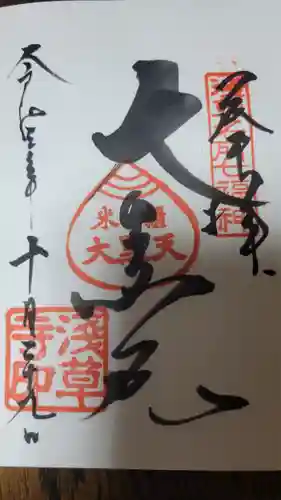 奉拝
浅草名所七福神
大黒天
米櫃
大黒天
令和五年十月二十九日
淺草寺印